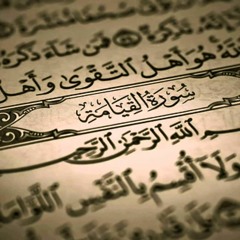 إِنَّهُۥ تَذْكِرَةٌ ۝ فَمَن شَآءَ ذَكَرَ
هُوَ أَهْلُ ٱلتَّقْوَىٰ وَأَهْلُ
سُورَةُ القِيَامَةِ
ٱللَّهِ ٱلرَّحْمَـٰنِ ٱلرَّحِيمِ
وَلَآ أُقْسِمُ بِٱلنَّفْسِ ٱللَّوَّامَةِ